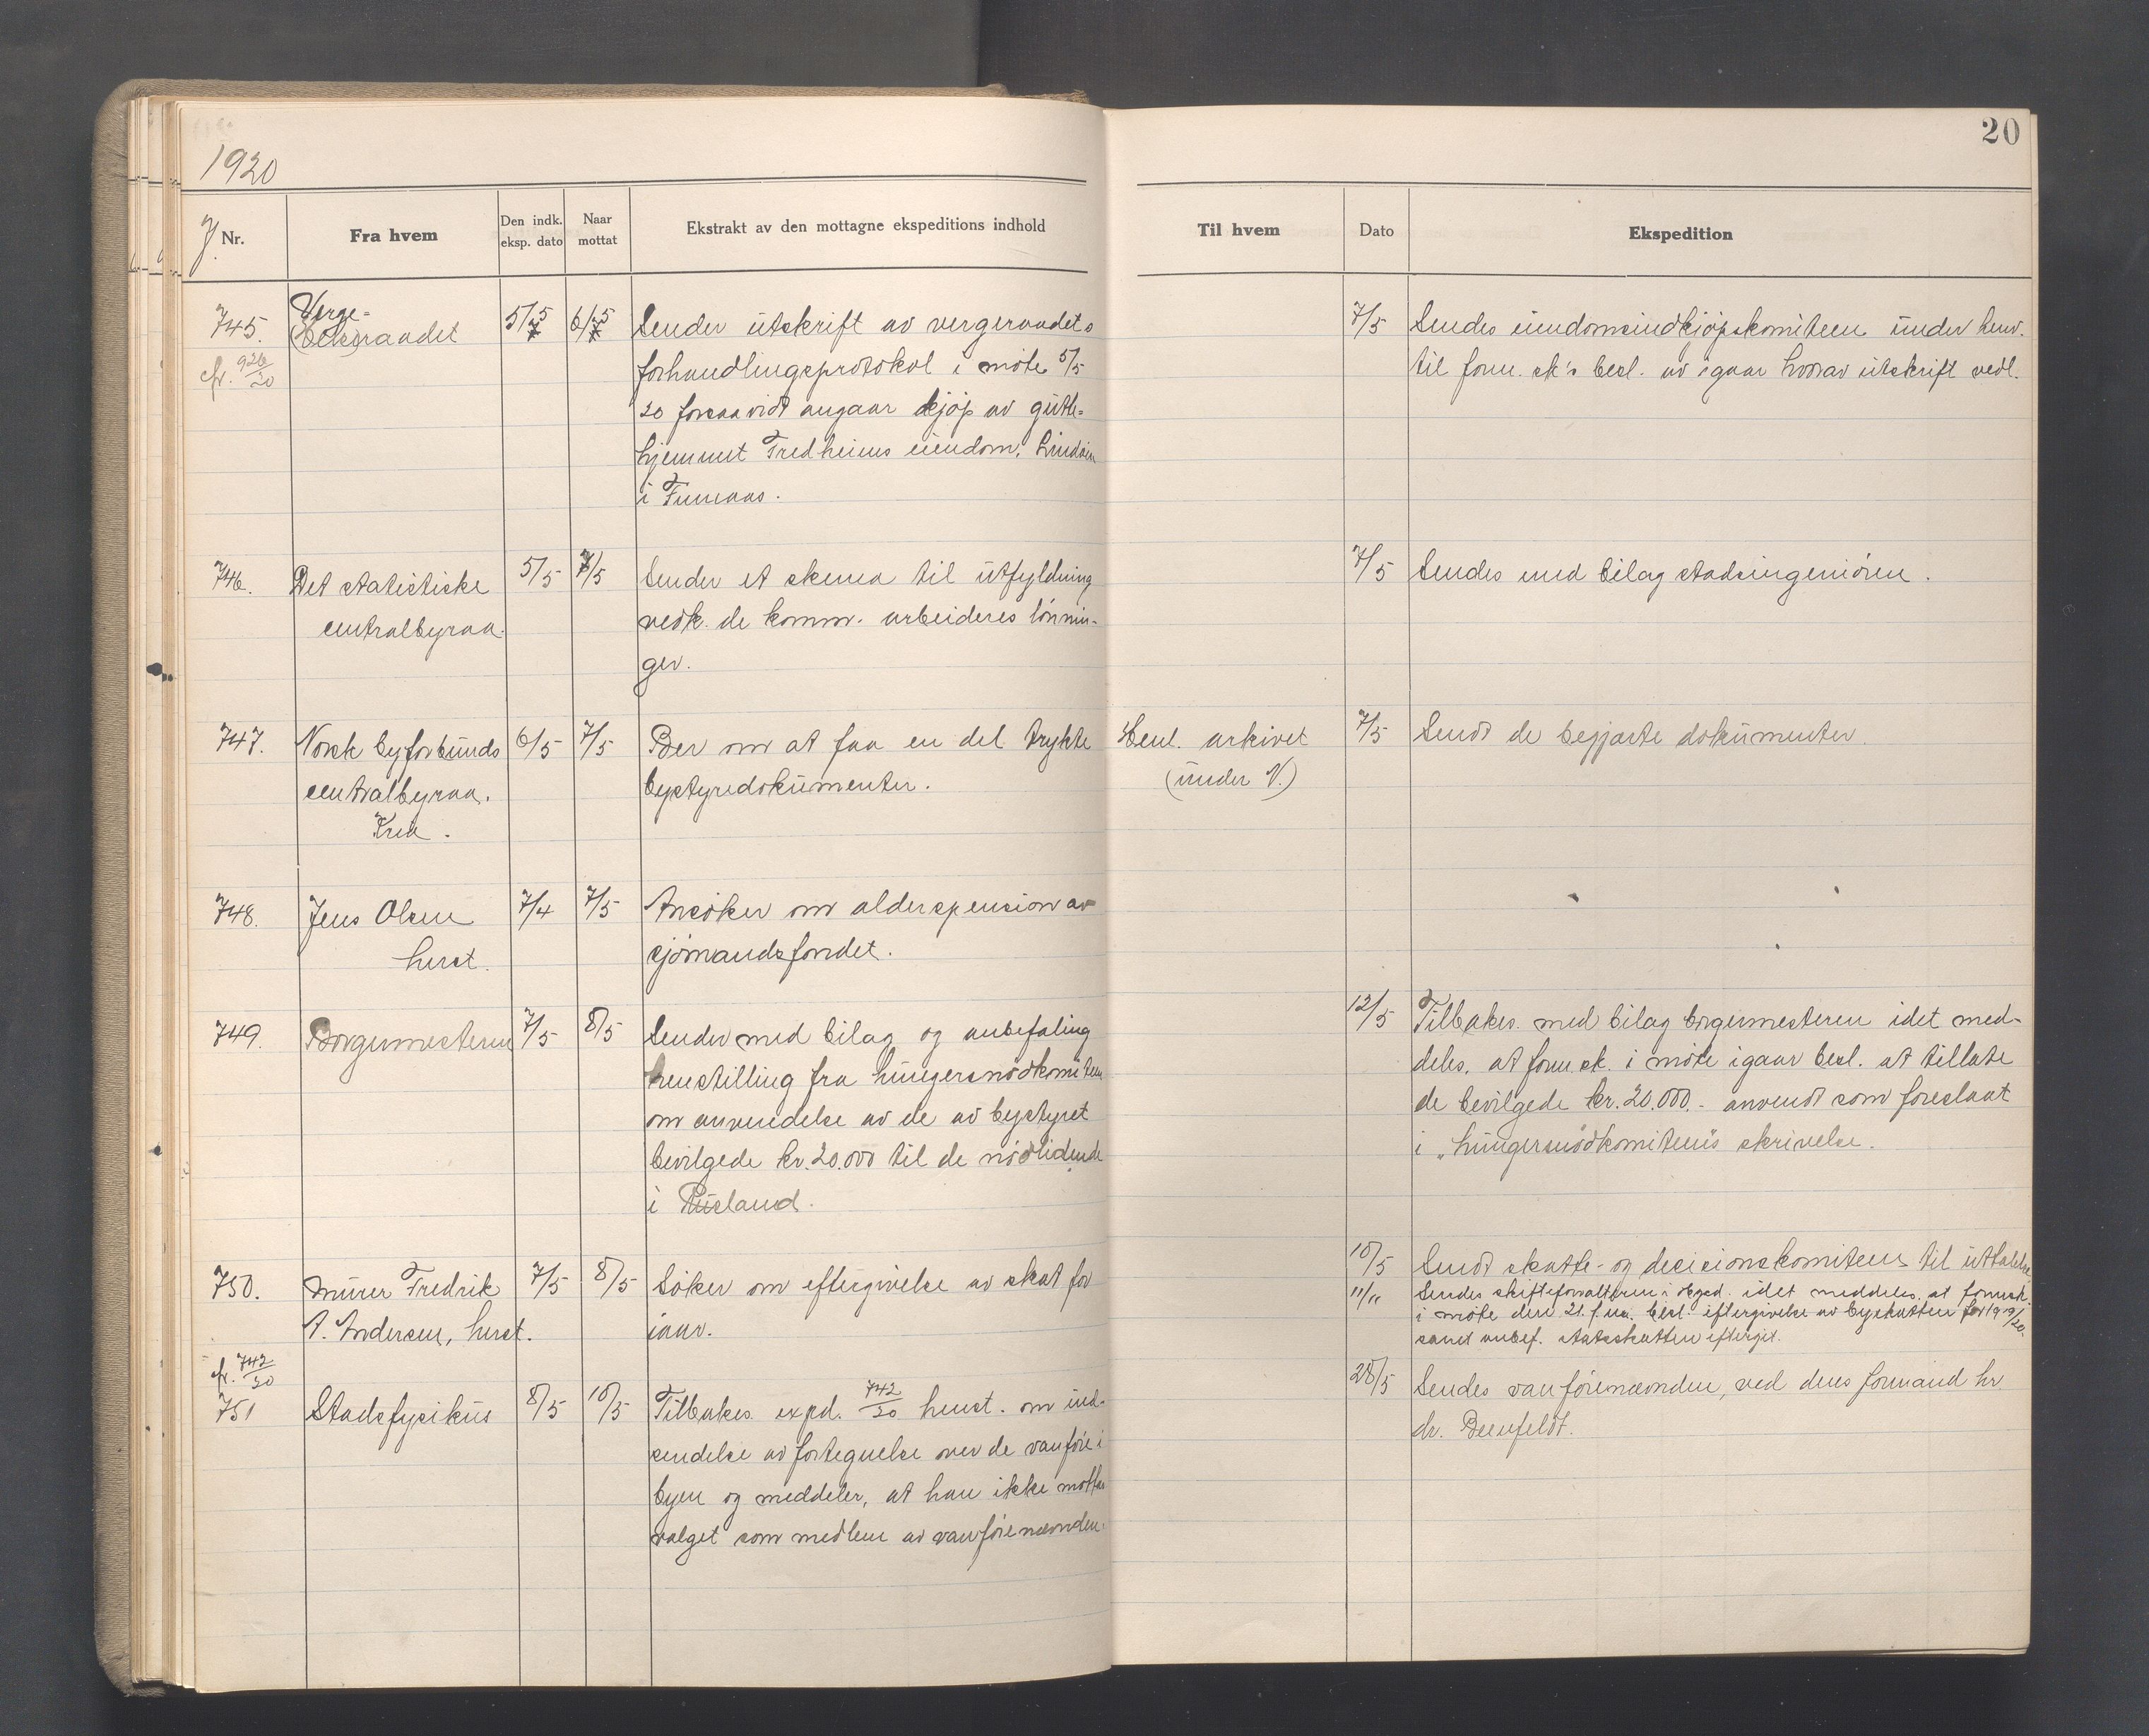 20
1920
J. Nr.
Fra hvem
Den indk. eksp. dato
Naar mottat
Ekstrakt av den mottagne ekspeditions indhold
Til hvem
Dato
Ekspedition
745.
cfr. 926/20
Verge-
raadet
5/5
6/5
Sender utskrift av vergeraadets
forhandlingsprotokol i møte 5/5
20 forsaavidt angaar kjøp av gutte-
hjemmet Fredheims eiendom,
i
7/5
Sendes eiendomsindkjøpskomiteen under henv.
til form.sk's besl. av igaar hvorav utskrift vedl.
746.
Det statistiske
centralbyraa.
5/5
7/5
Sender et skema til utfyldning
vedk. de komm. arbeideres lønnin-
ger.
7/5
Sendes med bilag stadsingeniøren.
747.
Norsk byforbunds
centralbyraa.
Kria.
6/5
7/5
Ber om at faa en del trykte
bystyredokumenter.
Henl. arkivet
(under N.)
7/5
Sendt de begjærte dokumenter.
748.
Jens Olsen
herst.
7/4
7/5
Ansøker om alderspension av
sjømandsfondet.
749.
Borgermesteren
7/5
8/5
Sender med bilag og anbefaling
henstilling fra hungersnødkomiteen
om anvendelse av de av bystyret
bevilgede kr. 20.000 til de nødlidende
i Rusland.
12/5
Tilbakes. med bilag borgermesteren idet med-
deles, at form.sk. i møte igaar besl. at tillate
de bevilgede kr. 20.000.- anvendt som foreslaat
i "hungersnødkomiteens skrivelse.
750.
Murer Fredrik
A. Andersen, herst.
7/5
8/5
Søker om eftergivelse av skat for
iaar.
10/5
Sendt skatte- og decisionskomiteen til uttalelse
11/11
Sendes skifteforvalteren i idet meddeles, at formsk.
i møte den 21. f.m. besl. eftergivelse av byskatten for 1919/20.
samt anbef. statsskatten eftergit.
cfr. 742/20
751
Stadsfysikus
8/5
10/5
Tilbakes. expd. 742/20 henst. om ind-
sendelse av fortegnelse over de vanføre i
byen og meddeler, at han ikke mottar
valget som medlem av vanførenævnden.
28/5
Sendes vanførenævnden, ved dens formand hr
dr. Beenfeldt.